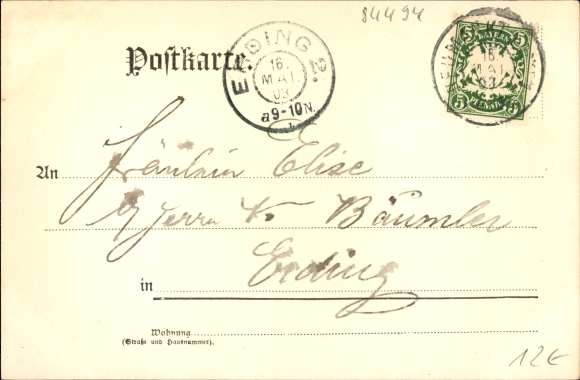 84494
Postkarte.
ERDING 2.
16.
MAI.
03
a9-10N.
BAYERN
5 5
5 5
PFENNIG
16.
MAI
03
An Fräulein Elise
Herrn K. Bäumler
Erding
in
Wohnung
(Straße und Hausnummer).
12€